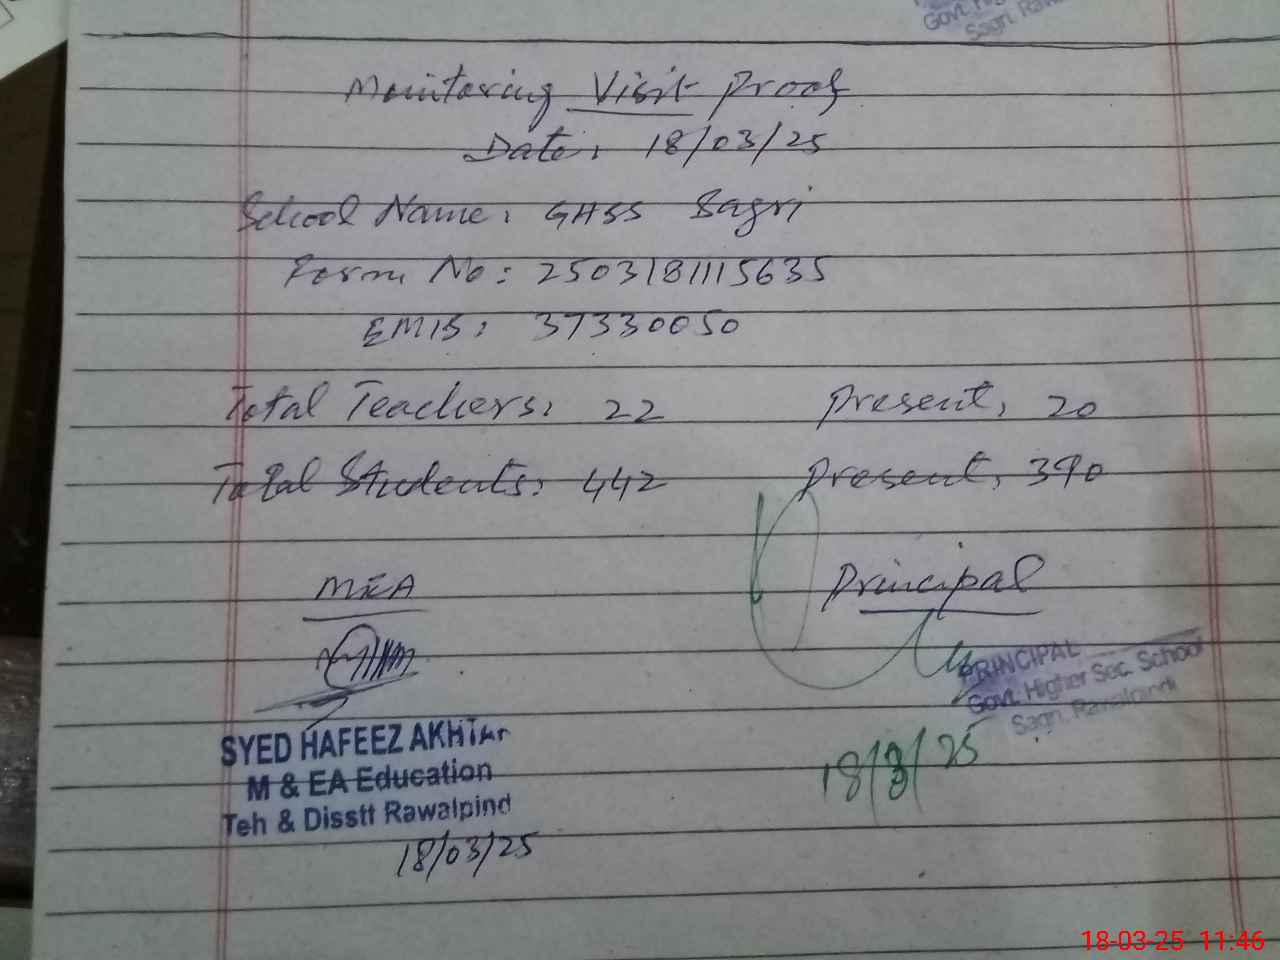 Govt. Hig
Sagri, Raw
Monitoring Visit Proof
Date: 18/03/25
School Name: GHSS Sagri
Form No: 2503181115635
EMIS: 37330050
Total Teachers: 22 Present: 20
Total Students: 442 Present: 390
MEA Principal
PRINCIPAL
Govt. Higher Sec. School
Sagri, Rawalpindi
SYED HAFEEZ AKHTAr
M & EA Education
Teh & Disstt Rawalpind
18/3/25
18/03/25
18-03-25 11:46